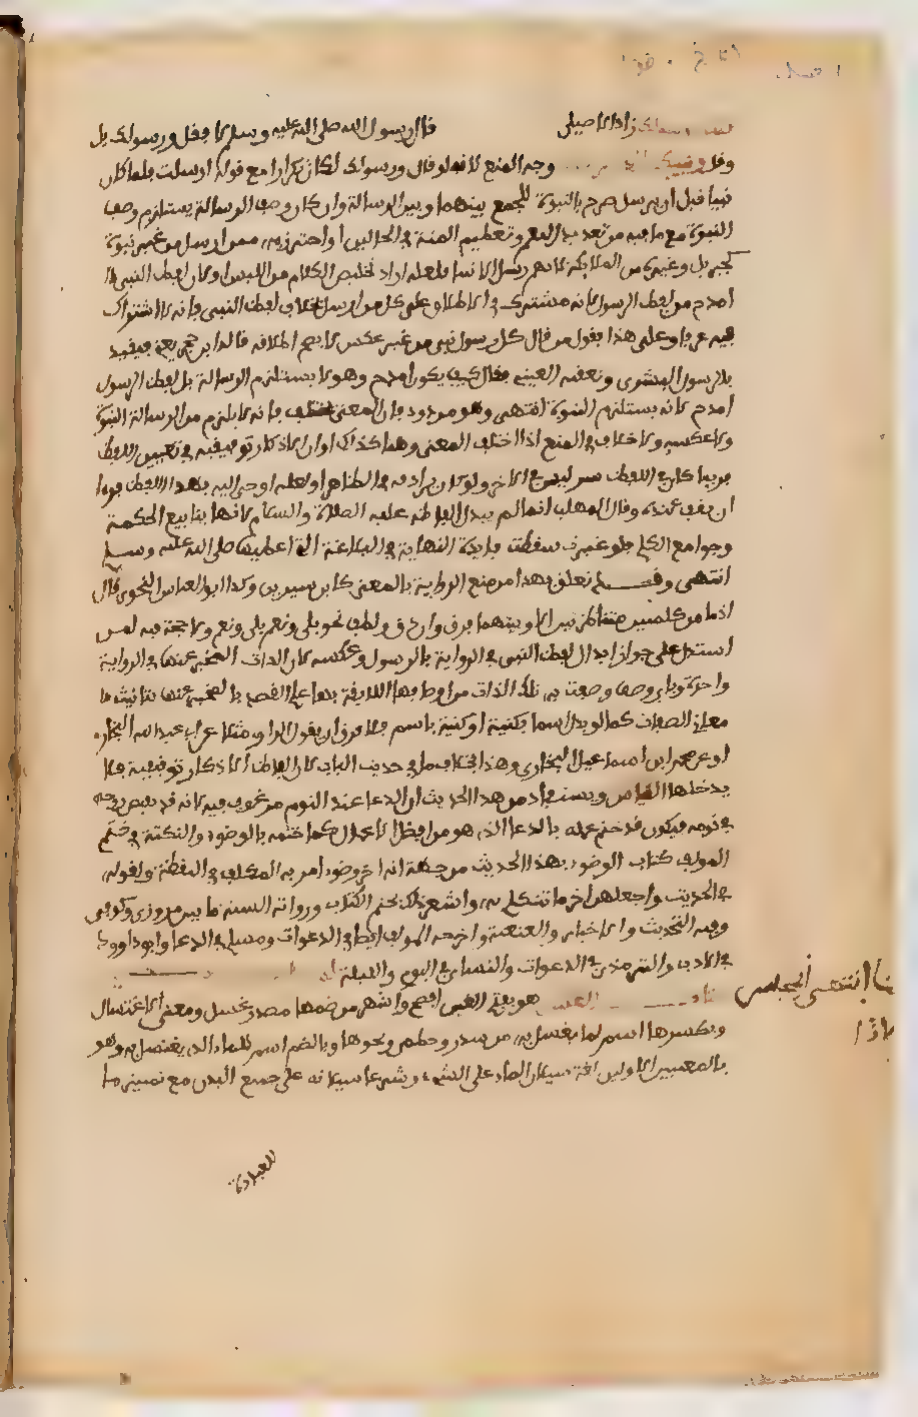 ورسولك زاد الاصيلي قال رسول الله صلى الله عليه وسلم لا تقل ورسولك بل
وقل ونبيك الذي وجه المنع لانه لو قال ورسولك لكان تكرارا مع قوله ارسلت فلما كان
نبيا قبل ان يرسل صرح بالنبوة للجمع بينها وبين الرسالة وان كان وصف الرسالة يستلزم وصف
النبوة مع ما فيه من تعديد النعم وتعظيم المنة في الحالين او احترز به ممن ارسل من غير نبوة
كجبريل وغيره من الملائكة لانهم رسل لا انبيا فلعله اراد تخليص الكلام من اللبس او لان لفظ النبي
امدح من لفظ الرسول لانه مشترك في الاطلاق على كل من ارسل بخلاف لفظ النبي فانه لا اشتراك
فيه عرفا وعلى هذا فقول من قال كل رسول نبي من غير عكس لا يصح اطلاقه قاله ابن حجر يعني فيقيد
بالرسول البشري وتعقبه العيني فقال كيف يكون امدح وهو لا يستلزم الرسالة بل لفظ الرسول
امدح لانه يستلزم النبوة انتهى وهو مردود فان المعنى مختلف فانه لا يلزم من الرسالة النبوة
ولا عكسه ولا خلاف في المنع اذا اختلف المعنى وهنا كذلك او ان الاذكار توقيفية في تعيين اللفظ
فربما كان في اللفظ سر ليس في الاخر ولو كان يرادفه في الظاهر او لعله اوحي اليه بهذا اللفظ فراى
ان يقف عنده وقال المهلب انما لم يبدل الفاظه عليه الصلاة والسلام لانها ينابيع الحكمة
وجوامع الكلم فلو غيرت سقطت فايدة النهاية في البلاغة التي اعطيها صلى الله عليه وسلم
انتهى وقد تعلق بهذا من منع الرواية بالمعنى كابن سيرين وكذا ابو العباس النحوي قال
اذ ما من كلمتين متناظرتين الا وبينهما فرق وان دق ولطف نحو بلى ونعم ولا حجة فيه لمن
استدل على جواز ابدال لفظ النبي في الرواية بالرسول وعكسه لان الذات المخبر عنها في الرواية
واحدة وباي وصف وصفت به تلك الذات من اوصافها اللايقة بها علم القصد بالمخبر عنها ولو تباينت
معاني الصفات كما لو بدل اسما بكنية او كنية باسم فلا فرق ان يقول الراوي مثلا عن ابي عبد الله البخاري
او عن محمد ابن اسماعيل البخاري وهذا بخلاف ما في حديث الباب لان الفاظ الاذكار توقيفية فلا
يدخلها القياس ويستفاد من هذا الحديث ان الدعا عند النوم مرغوب فيه لانه قد تقبض روحه
في نومه فيكون قد ختم عمله بالدعا الذي هو من افضل الاعمال كما ختمه بالوضوء والنكتة في ختم
المولف كتاب الوضوء بهذا الحديث من جهة انه اخر وضوء امر به المكلف في اليقظة ولقوله
في الحديث واجعلهن اخر ما تتكلم به واشعر ذلك بختم الكتاب ورواته الستة ما بين مروزي وكوفي
وفيه التحديث والاخبار والعنعنة واخرجه المولف ايضا في الدعوات ومسلم في الدعا وابو داوود
في الادب والترمذي في الدعوات والنساي في اليوم والليلة
الغسل هو بفتح الغين افصح واشهر من ضمها مصدر غسل وبمعنى الاغتسال
وبكسرها اسم لما يغسل به من سدر وخطمي ونحوها وبالضم اسم للماء الذي يغتسل به وهو
بالمعنيين الاولين لغة سيلان الماء على الشيء وشرعا سيلانه على جميع البدن مع تمييز ما
للعبادة
انتهى المجلس